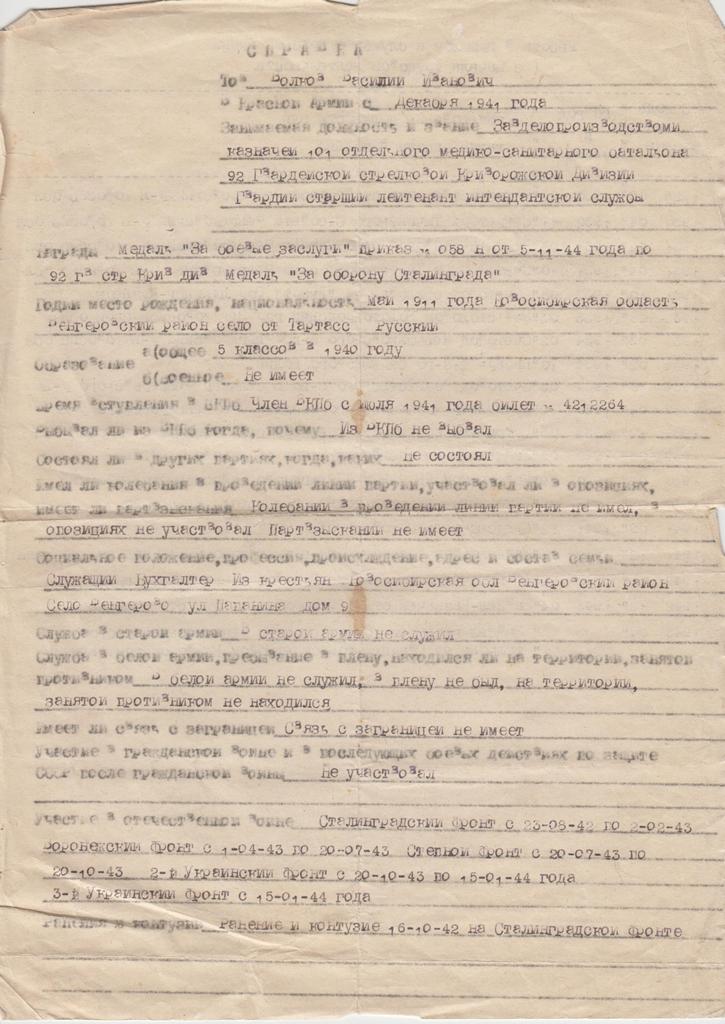 СПРАВКА
Тов Волков Василий Иванович
В Красной Армии с Декабря 1941 года
Занимаемая должность и звание Завделопроизводствоми
казначей 101 отдельного медико-санитарного батальона
92 Гвардейской стрелковой Криворожской Дивизии
Гвардии старший лейтенант интендантской службы
Награды Медаль "За боевые заслуги" приказ № 058 н от 5-11-44 года по
92 гв стр Крив див Медаль "За оборону Сталинграда"
Годи место рождения, национальность Май 1911 года Новосибирская область
Венгеровский район село ст Тартасс Русский
Образование а(общее 5 классов в 1940 году
б(военное Не имеет
Время вступления в ВКПб Член ВКПб с июля 1941 года билет № 4212264
Выбывал ли из ВКПб когда, почему Из ВКПб не выбвал
Состоял ли в других партиях,когда,каких не состоял
Имел ли колебания в проведении линии партии,участвовал ли в опозициях,
имеет ли партвзыскания Колебании в проведении линии партии не имел, в
опозициях не участвовал Партвзыскании не имеет
Социальное положение,профессия,происхождение,адрес и состав семьи
Служащий Бухгалтер Из крестьян Новосибирская обл Венгеровский район
Село Венгерово ул Папанина дом 9
Служба в старой армии В старой армии не служил
Служба в белой армии,пребывание в плену,находился ли на территории,занятой
противником В белой армии не служил, в плену не был, на территории,
занятой противником не находился
Имеет ли связь с заграницей Связь с заграницей не имеет
Участие в гражданской войне и в последующих боевых действиях по защите
СССР после гражданской войны Не участвовал
Участие в отечественной войне Сталинградский фронт с 23-08-42 по 2-02-43
Воронежский фронт с 1-04-43 по 20-07-43 Степной фронт с 20-07-43 по
20-10-43 2-й Украинский фронт с 20-10-43 по 15-01-44 года
3-й Украинский фронт с 15-01-44 года
Ранения и контузии Ранение и контузие 16-10-42 на Сталинградской фронте